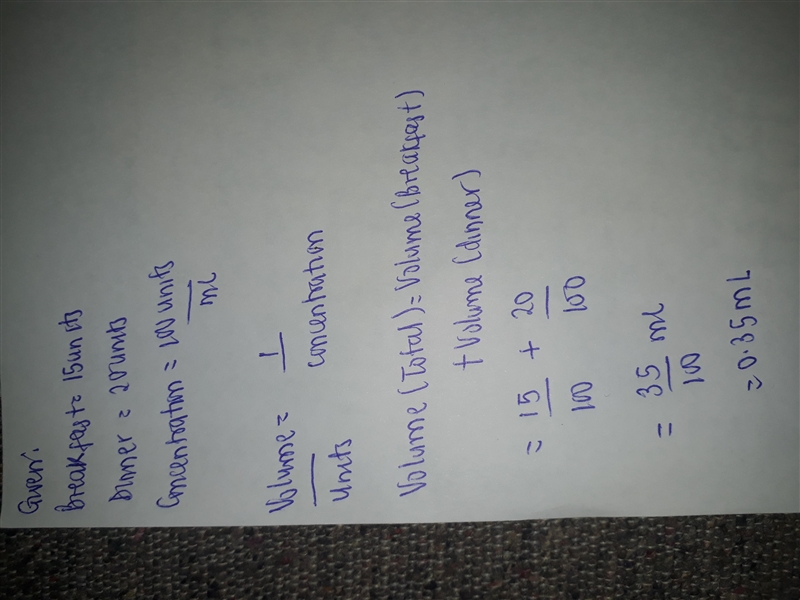 Given:
Breakfast = 15 units
Dinner = 20 units
Concentration = 100 units
mL
Volume = 1
Units concentration
Volume (Total) = Volume (Breakfast)
+ Volume (dinner)
= 15 + 20
100 100
= 35 mL
100
= 0.35 mL